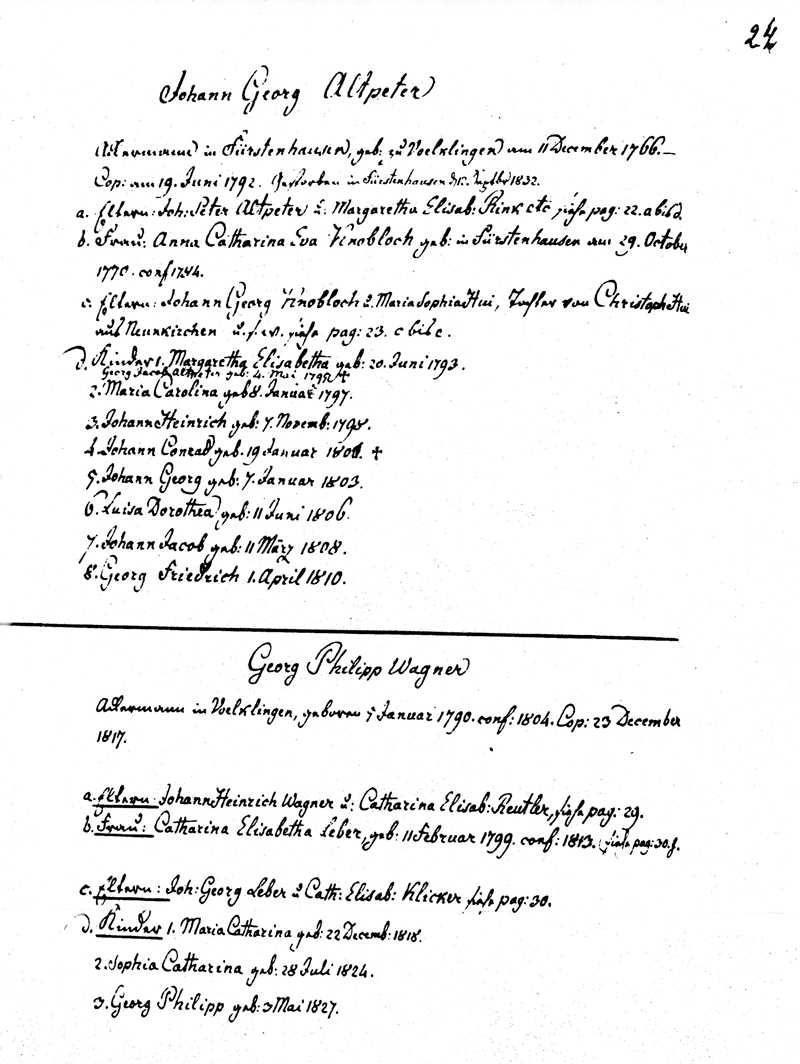 24
Johann Georg Altpeter
Akermann in Fürstenhausen, geb: zu Voelklingen am 11 December 1766.—
Cop: am 19. Juni 1792. Gestorben in Fürstenhausen 1832.
a. Eltern: Joh: Peter Altpeter u. Margaretha Elisab: Rink etc siehe pag: 22. a bis d
b. Frau: Anna Catharina Eva Knobloch geb: in Fürstenhausen am 29. October
1770. conf 1784.
c. Eltern: Johann Georg Knobloch u. Maria Sophia Hui, Tochter von Christoph Hui
aus Neunkirchen u.s.w. siehe pag: 23. c bis e.
d. Kinder 1. Margaretha Elisabetha geb: 20. Juni 1793.
Georg Jacob Altpeter geb: 4. Mai 1795 +
2. Maria Carolina geb 8. Januar 1797.
3. Johann Heinrich geb: 7. Novemb: 1798.
4. Johann Conrad geb. 19 Januar +
5. Johann Georg geb: 7. Januar 1803.
6. Luisa Dorothea geb: 11 Juni 1806.
7. Johann Jacob geb: 11 März 1808.
8. Georg Friedrich 1. April 1810.
Georg Philipp Wagner
Akermann in Voelklingen, geboren 5 Januar 1790. conf: 1804. Cop: 23 December
1817.
a. Eltern: Johann Heinrich Wagner u: Catharina Elisab: Reutler, siehe pag: 29.
b. Frau: Catharina Elisabetha Leber, geb: 11 Februar 1799. conf: 1813. siehe pag: 30. f.
c. Eltern: Joh: Georg Leber u Cath: Elisab: Klicker siehe pag: 30.
d. Kinder 1. Maria Catharina geb: 22 Decemb: 1818.
2. Sophia Catharina geb: 28 Juli 1824.
3. Georg Philipp geb: 3 Mai 1827.